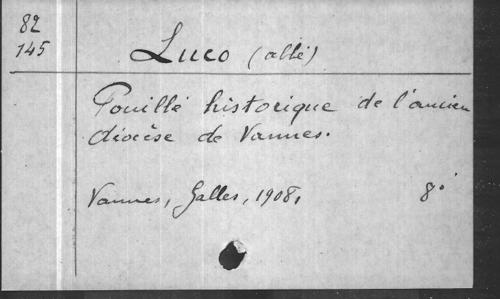 82
145
Luco (abbé)
Pouillé historique de l'ancien
diocèse de Vannes.
Vannes, Galles, 1908, 8°